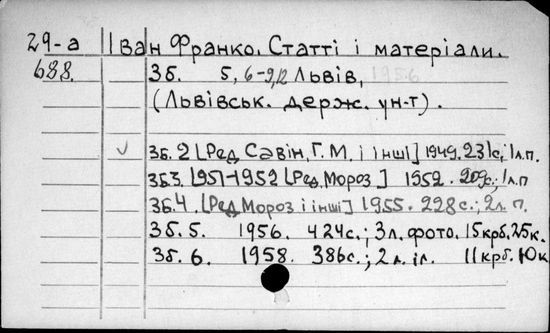 29-а Іван Франко. Статті і матеріали.
688. Зб. 5, 6-9,12 Львів, 1956
(Львівськ. держ. ун-т).
✓ Зб. 2 [Ред. Савін, Г. М. і інші] 1949. 231с, 1л.п.
Зб.3. 1951-1952 [Ред. Мороз] 1952. 209с.; 1л.п
Зб.4. [Ред Мороз і інші] 1955. 228с.; 2л. п.
Зб. 5. 1956. 424с.; 3л. фото. 15крб.25к.
Зб. 6. 1958. 386с.; 2л. іл. 11крб. 10к